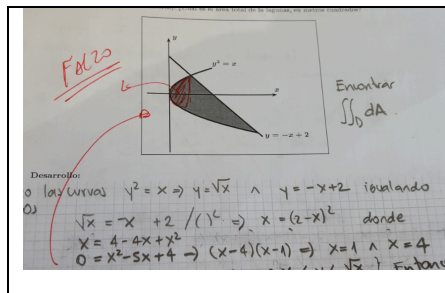 es el área total de la laguna, en metros cuadrados?
FALZO
y
y² = x
x
y = −x + 2
Encontrar
∬_D dA
Desarrollo:
o las curvas y² = x => y = √x ∧ y = -x+2 igualando
√x = -x + 2 /( )² => x = (2-x)² donde
x = 4 - 4x + x²
0 = x² - 5x + 4 → (x-4)(x-1) => x = 1 ∧ x = 4
√x